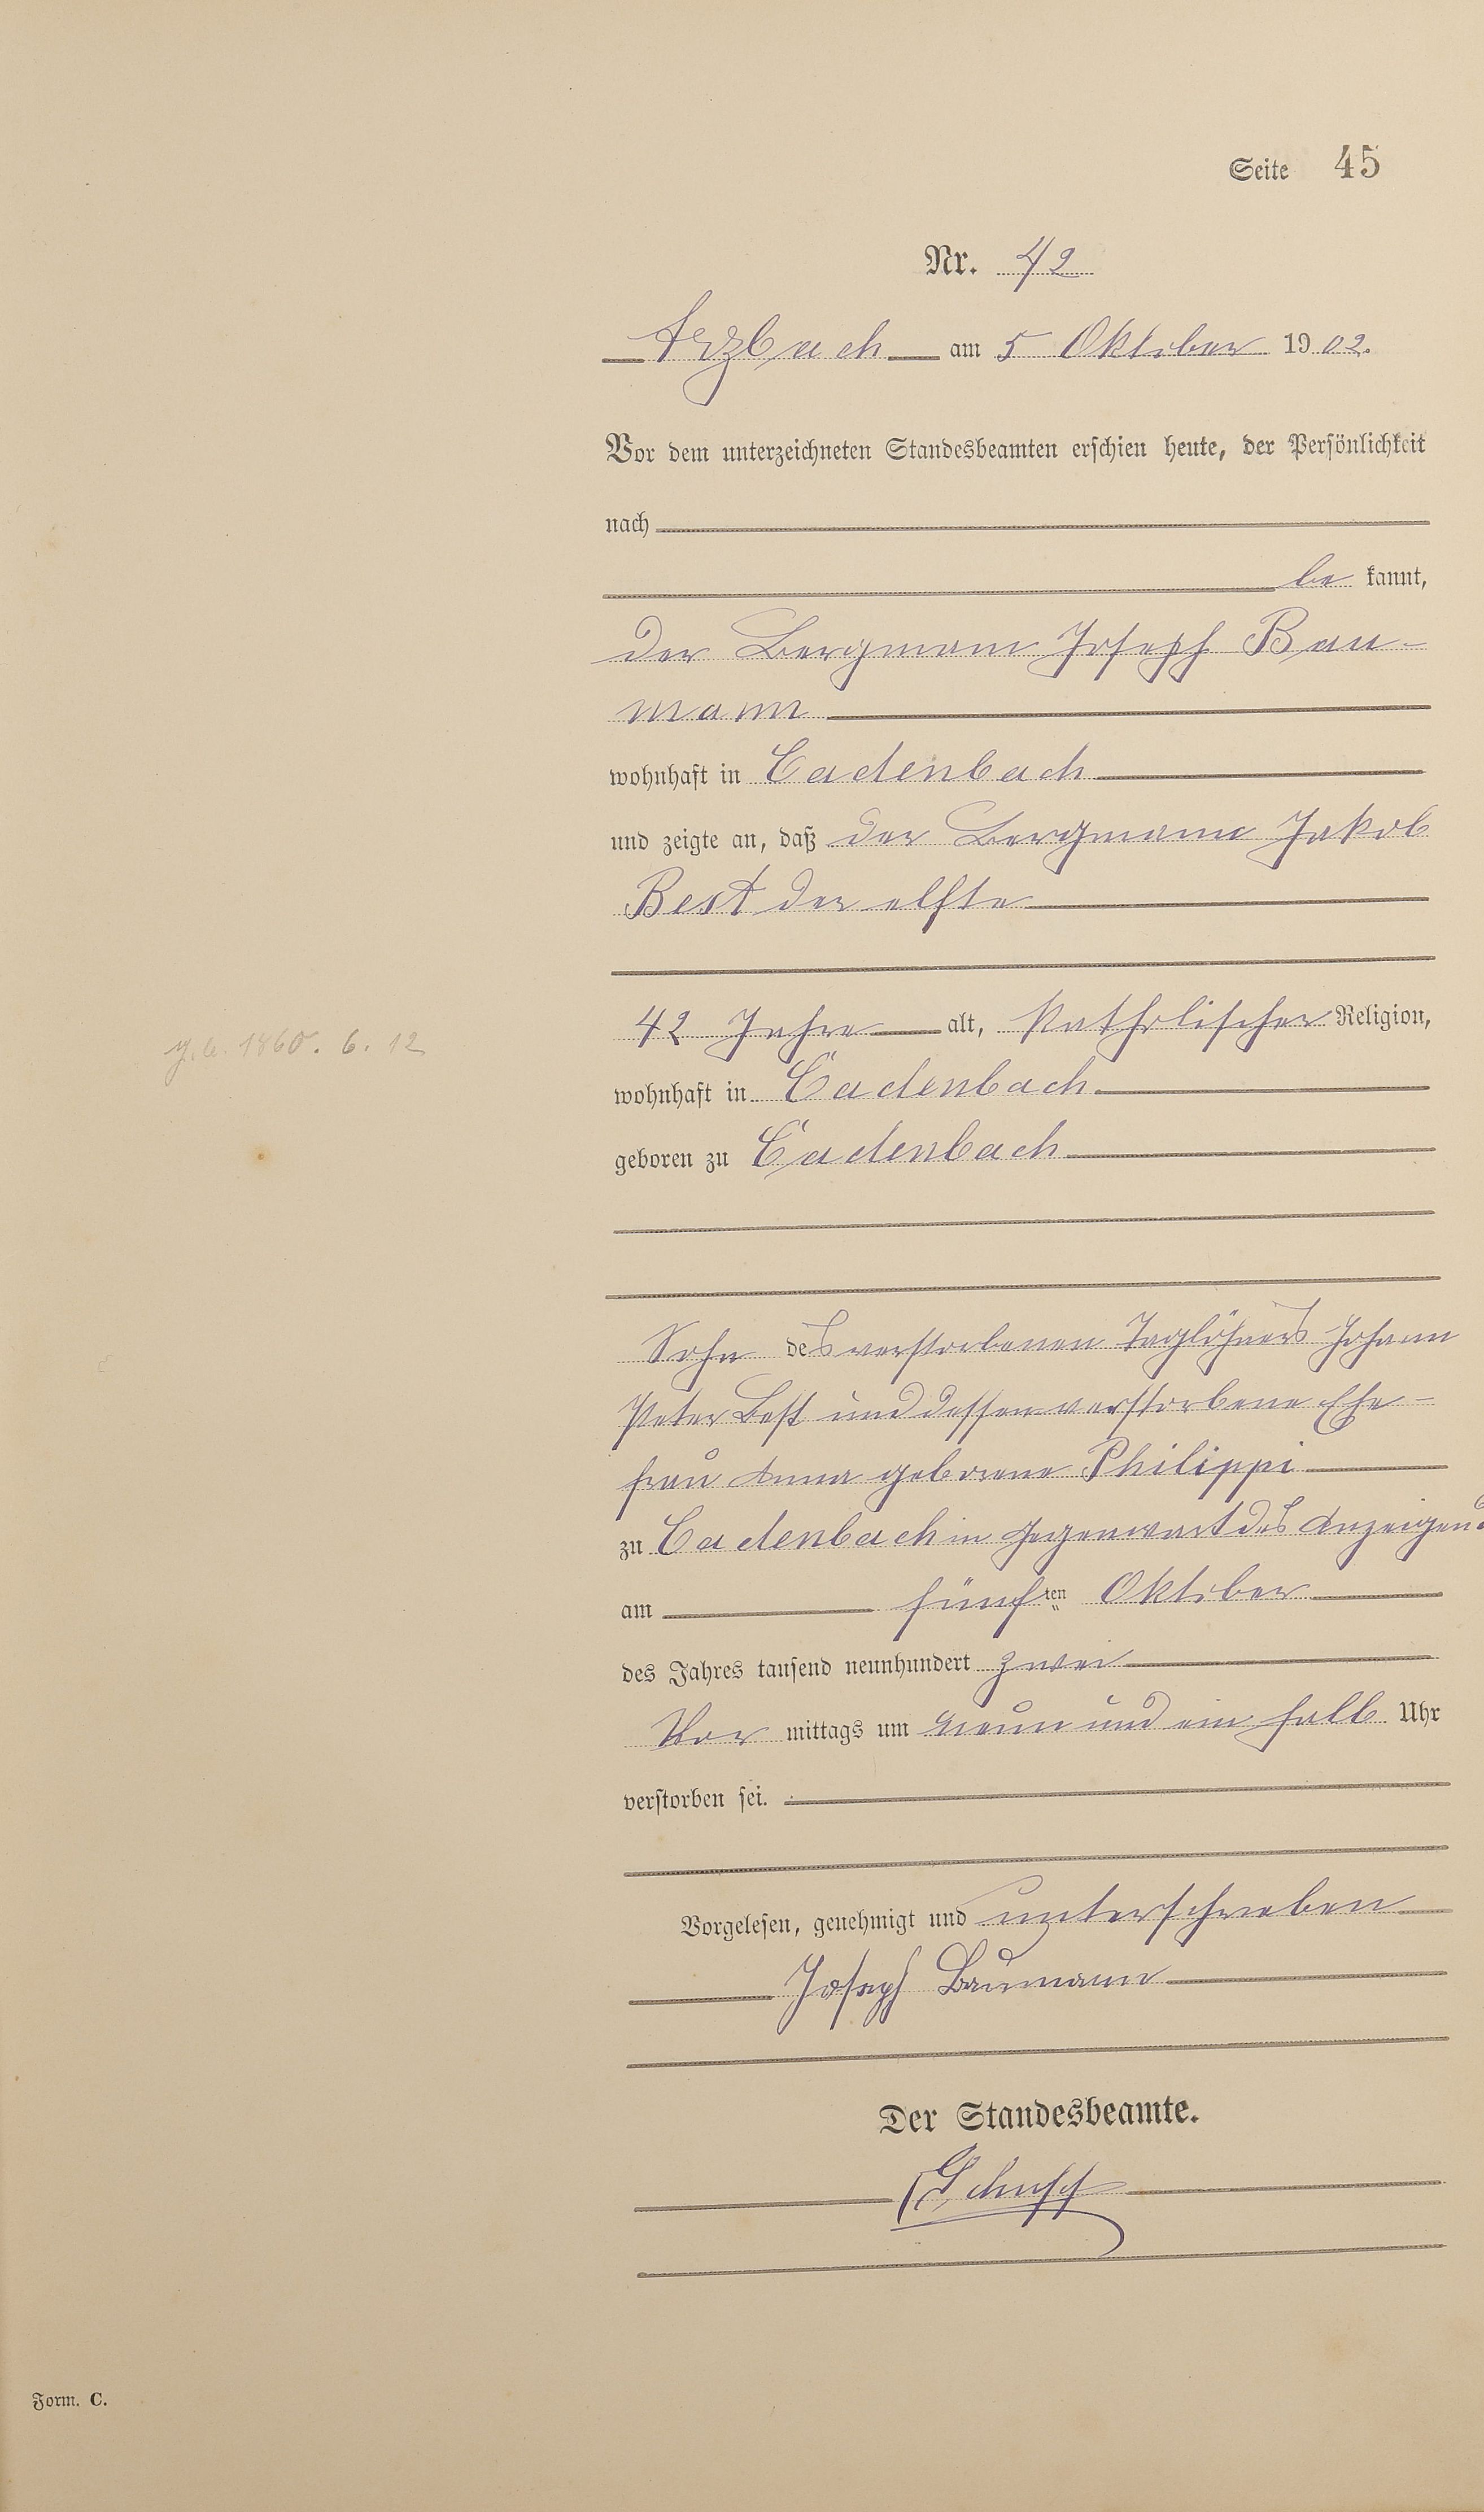 Seite 45
Nr. 42
Arzbach am 5 Oktober 1902.
Vor dem unterzeichneten Standesbeamten erschien heute, der Persönlichkeit
nach
be kannt,
der Bergmann Joseph Bau-
mann
wohnhaft in Cadenbach
und zeigte an, daß der Bergmann Jakob
Best der elfte
42 Jahre alt, katholischer Religion,
g.b. 1860. 6. 12
wohnhaft in Cadenbach
geboren zu Cadenbach
Sohn des verstorbenen Taglöhners Johann
Peter Best und dessen verstorbene Ehe-
frau Anna geborene Philippi
zu Cadenbach in Gegenwart des Anzeigend
am fünften Oktober
des Jahres tausend neunhundert zwei
Vor mittags um neun und ein halb Uhr
verstorben sei.
Vorgelesen, genehmigt und unterschrieben
Joseph Baumann
Der Standesbeamte.
Schupp
Form. C.